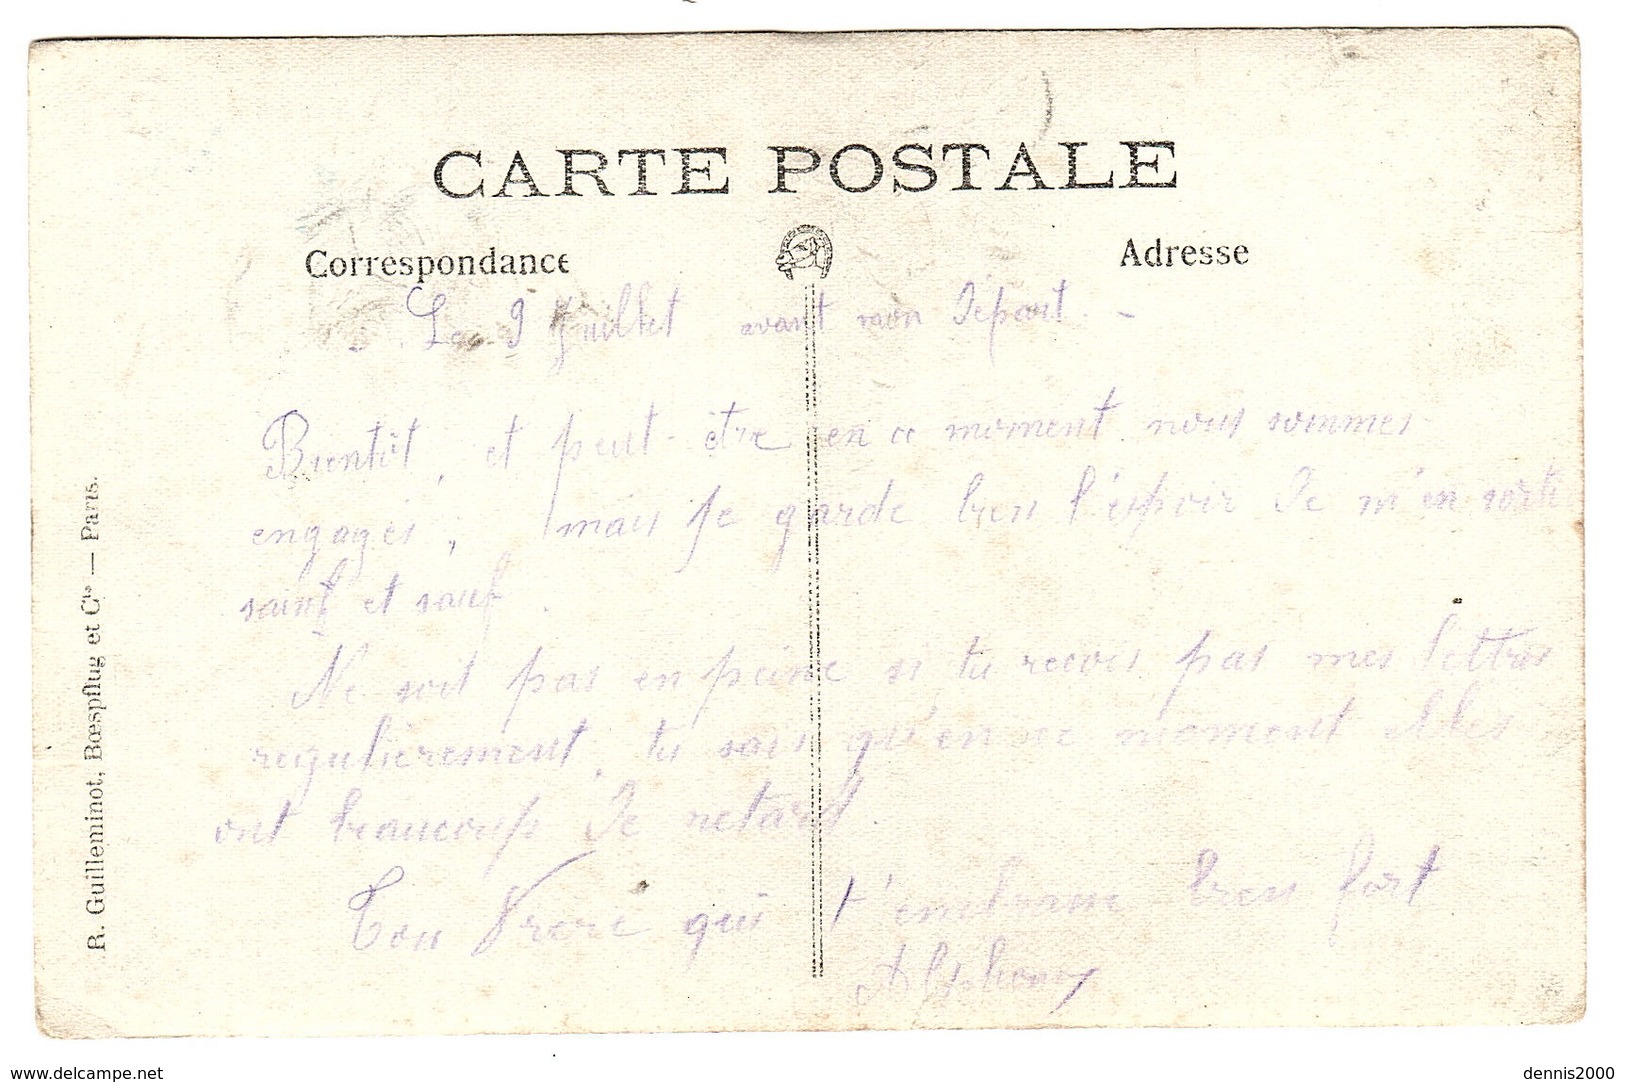 CARTE POSTALE
Correspondance
Adresse
Le 9 Juillet avant mon Départ. -
Bientôt, et peut-être en ce moment nous sommes
engagés ; mais je garde bien l'espoir de m'en sortir
saint et sauf.
Ne soit pas en peine si tu recois pas mes lettres
regulierement, tu sais qu'en ce moment elles
ont beaucoup de retard.
Ton Frère qui t'embrasse bien fort
Alphonse
R. Guilleminot, Bœspflug et Cie — Paris.
www.delcampe.net
dennis2000